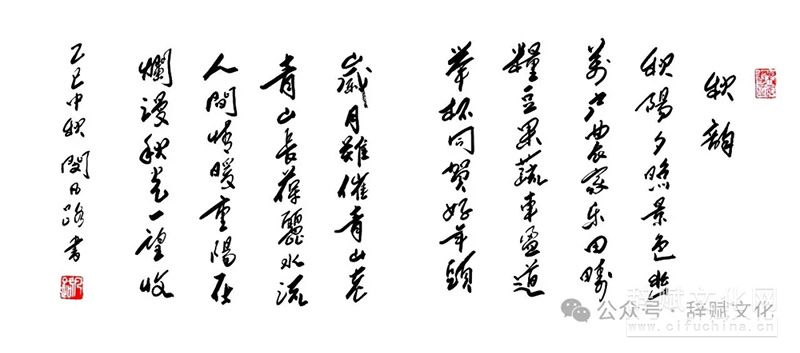 秋韵
秋阳夕照景色幽
万户农家乐田畴
粮豆果蔬车盈道
举杯同贺好年头
岁月难催青山老
青山长葆丽水流
人间情暖重阳在
烂漫秋光一望收
乙巳中秋 闵凡路书
公众号·辞赋文化
辞赋文化网
www.cifuchina.cn